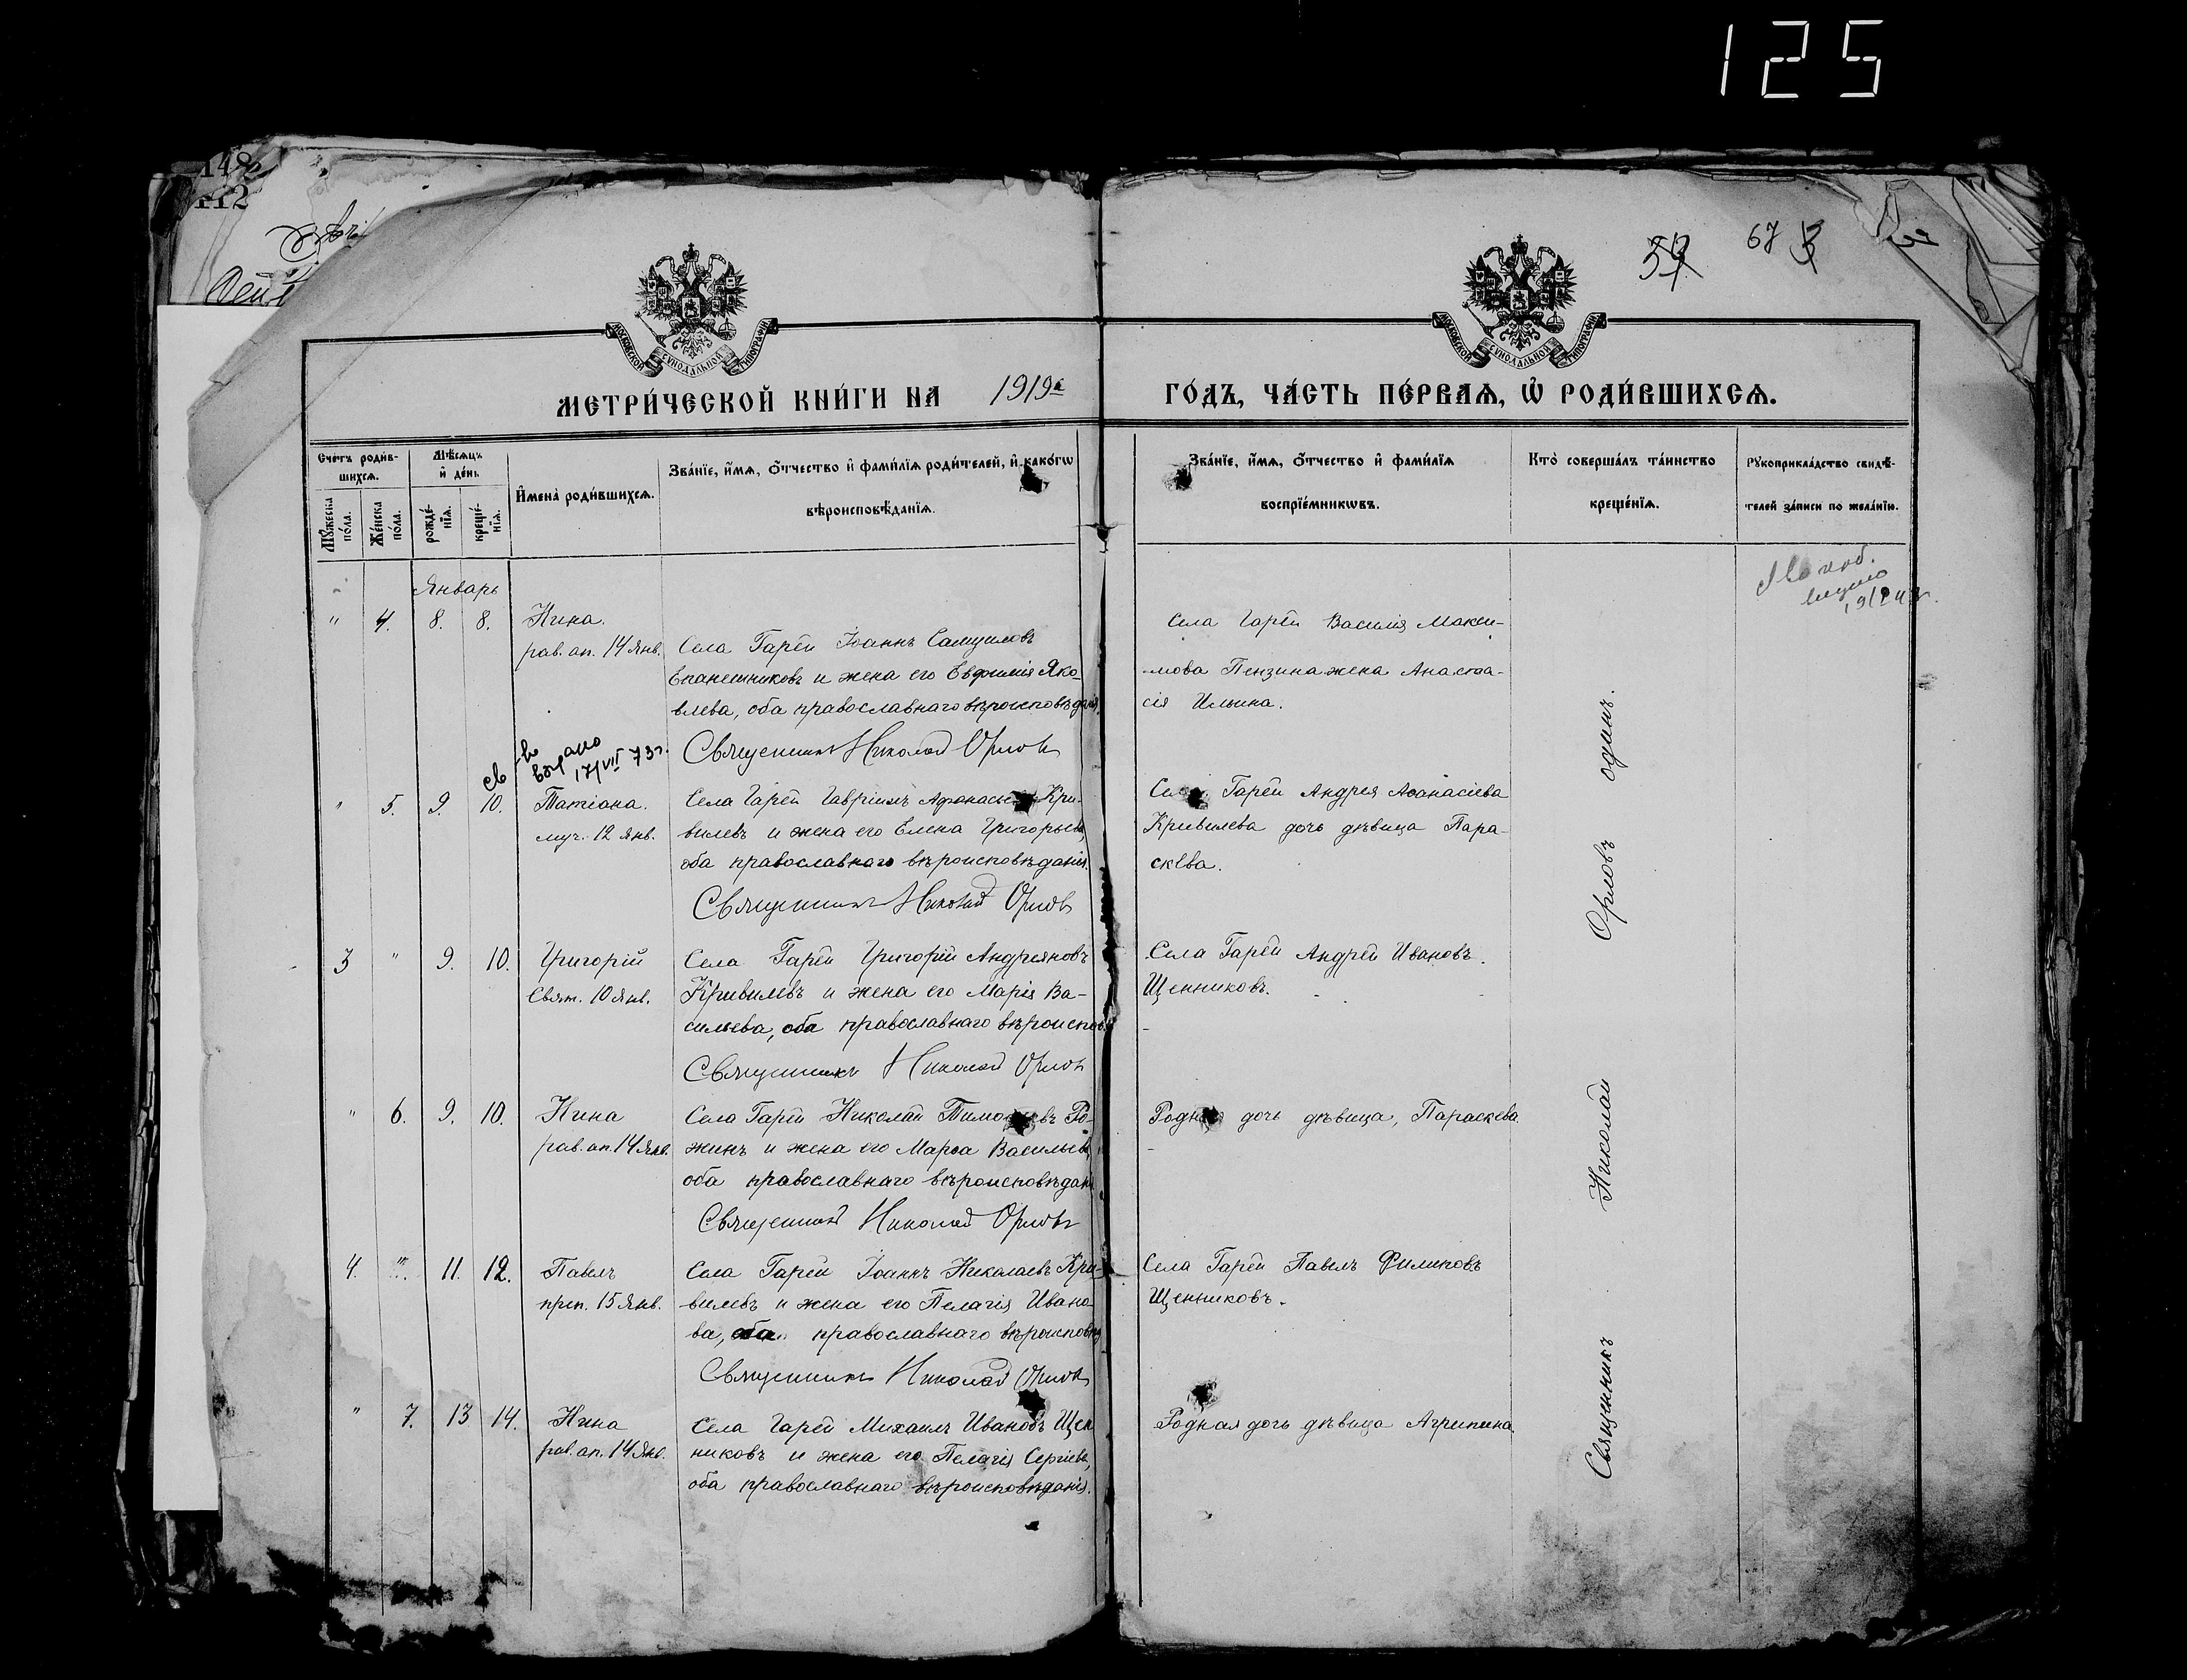 125
148
112
59
67
МОСКОВСКОЙ СѴНОДАЛЬНОЙ ТИПОГРАФІИ
МОСКОВСКОЙ СѴНОДАЛЬНОЙ ТИПОГРАФІИ
МЕТРИ́ЧЕСКОЙ КНИ́ГИ НА 1919й ГО́ДЪ, ЧА́СТЬ ПЕ́РВАѦ, Ѡ҆ РОДИ́ВШИХСѦ.
Сче́тъ роди́в-
шихсѧ.
Мꙋ́жеска
по́ла.
Же́нска
по́ла.
Мѣ́сѧцъ
и҆ де́нь
рожде́-
нїѧ.
креще́-
нїѧ.
И҆мена̀ роди́вшихсѧ.
Зва́нїе, и҆́мѧ, ѻ҆́тчество и҆ фами́лїѧ роди́телей, и҆ како́гѡ
вѣроисповѣ́данїѧ.
Зва́нїе, и҆́мѧ, ѻ҆́тчество и҆ фами́лїѧ
воспрїе́мникѡвъ.
Кто̀ соверша́лъ та́инство
креще́нїѧ.
Рꙋкоприкла́дство свидѣ́-
телей за́писи по жела́нїю.
Январь
" 4. 8. 8. Нина.
рав. ап. 14 Янв.
Села Гарей Іоаннъ Самуиловъ
Епанешниковъ и жена его Евфимія Яко-
влева, оба православнаго вѣроисповѣданія.
Священникъ Николай Орловъ
Села Гарей Василія Макси-
мова Пензина жена Анаста-
сія Ильина.
св-во
выдано
17/VII 73г.
" 5. 9. 10. Татіана.
муч. 12 Янв.
Села Гарей Гавріилъ Афанасьевъ Кри-
вилевъ и жена его Елена Григорьева,
оба православнаго вѣроисповѣданія.
Священникъ Николай Орловъ
Села Гарей Андрея Аѳанасіева
Кривилева дочь дѣвица Пара-
скева.
3 " 9. 10. Григорій
Свят. 10 Янв.
Села Гарей Григорій Андреяновъ
Кривилевъ и жена его Марія Ва-
сильева, оба православнаго вѣроиспов.
Священникъ Николай Орловъ
Села Гарей Андрей Ивановъ
Щенниковъ.
" 6. 9. 10. Нина
рав. ап. 14 Янв.
Села Гарей Николай Тимофеевъ Ро-
жинъ и жена его Марѳа Васильева,
оба православнаго вѣроисповѣдан
Священникъ Николай Орловъ
Родная дочь дѣвица, Параскева.
4. " 11. 12. Павелъ
преп. 15 Янв.
Села Гарей Іоаннъ Николаевъ Кри-
вилевъ и жена его Пелагія Ивано-
ва, оба православнаго вѣроисповѣд
Священникъ Николай Орловъ
Села Гарей Павелъ Филиповъ
Щенниковъ.
" 7. 13 14. Нина
рав. ап. 14 Янв.
Села Гарей Михаилъ Ивановъ Щен
никовъ и жена его Пелагія Сергіева,
оба православнаго вѣроисповѣданія.
Родная дочь дѣвица Агрипина.
Священникъ Николай Орловъ одинъ.